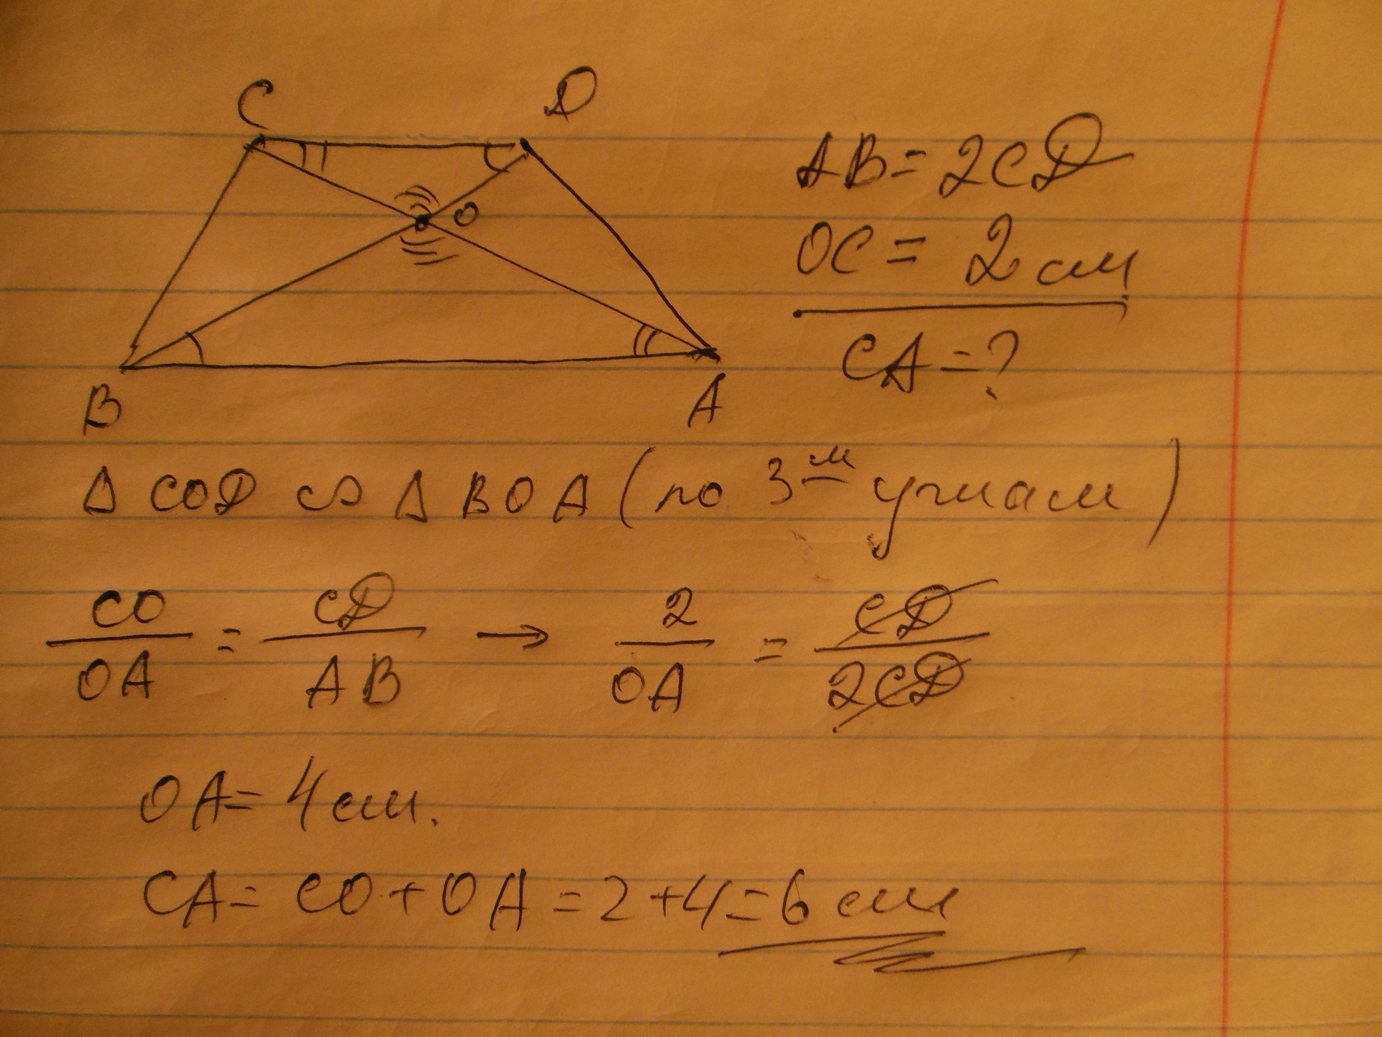 C D
O
B A
AB = 2CD
OC = 2 см
CA = ?
Δ COD ∽ Δ BOA (по 3м углам)
CO/OA = CD/AB → 2/OA = CD/2CD
OA = 4 см.
CA = CO + OA = 2 + 4 = 6 см